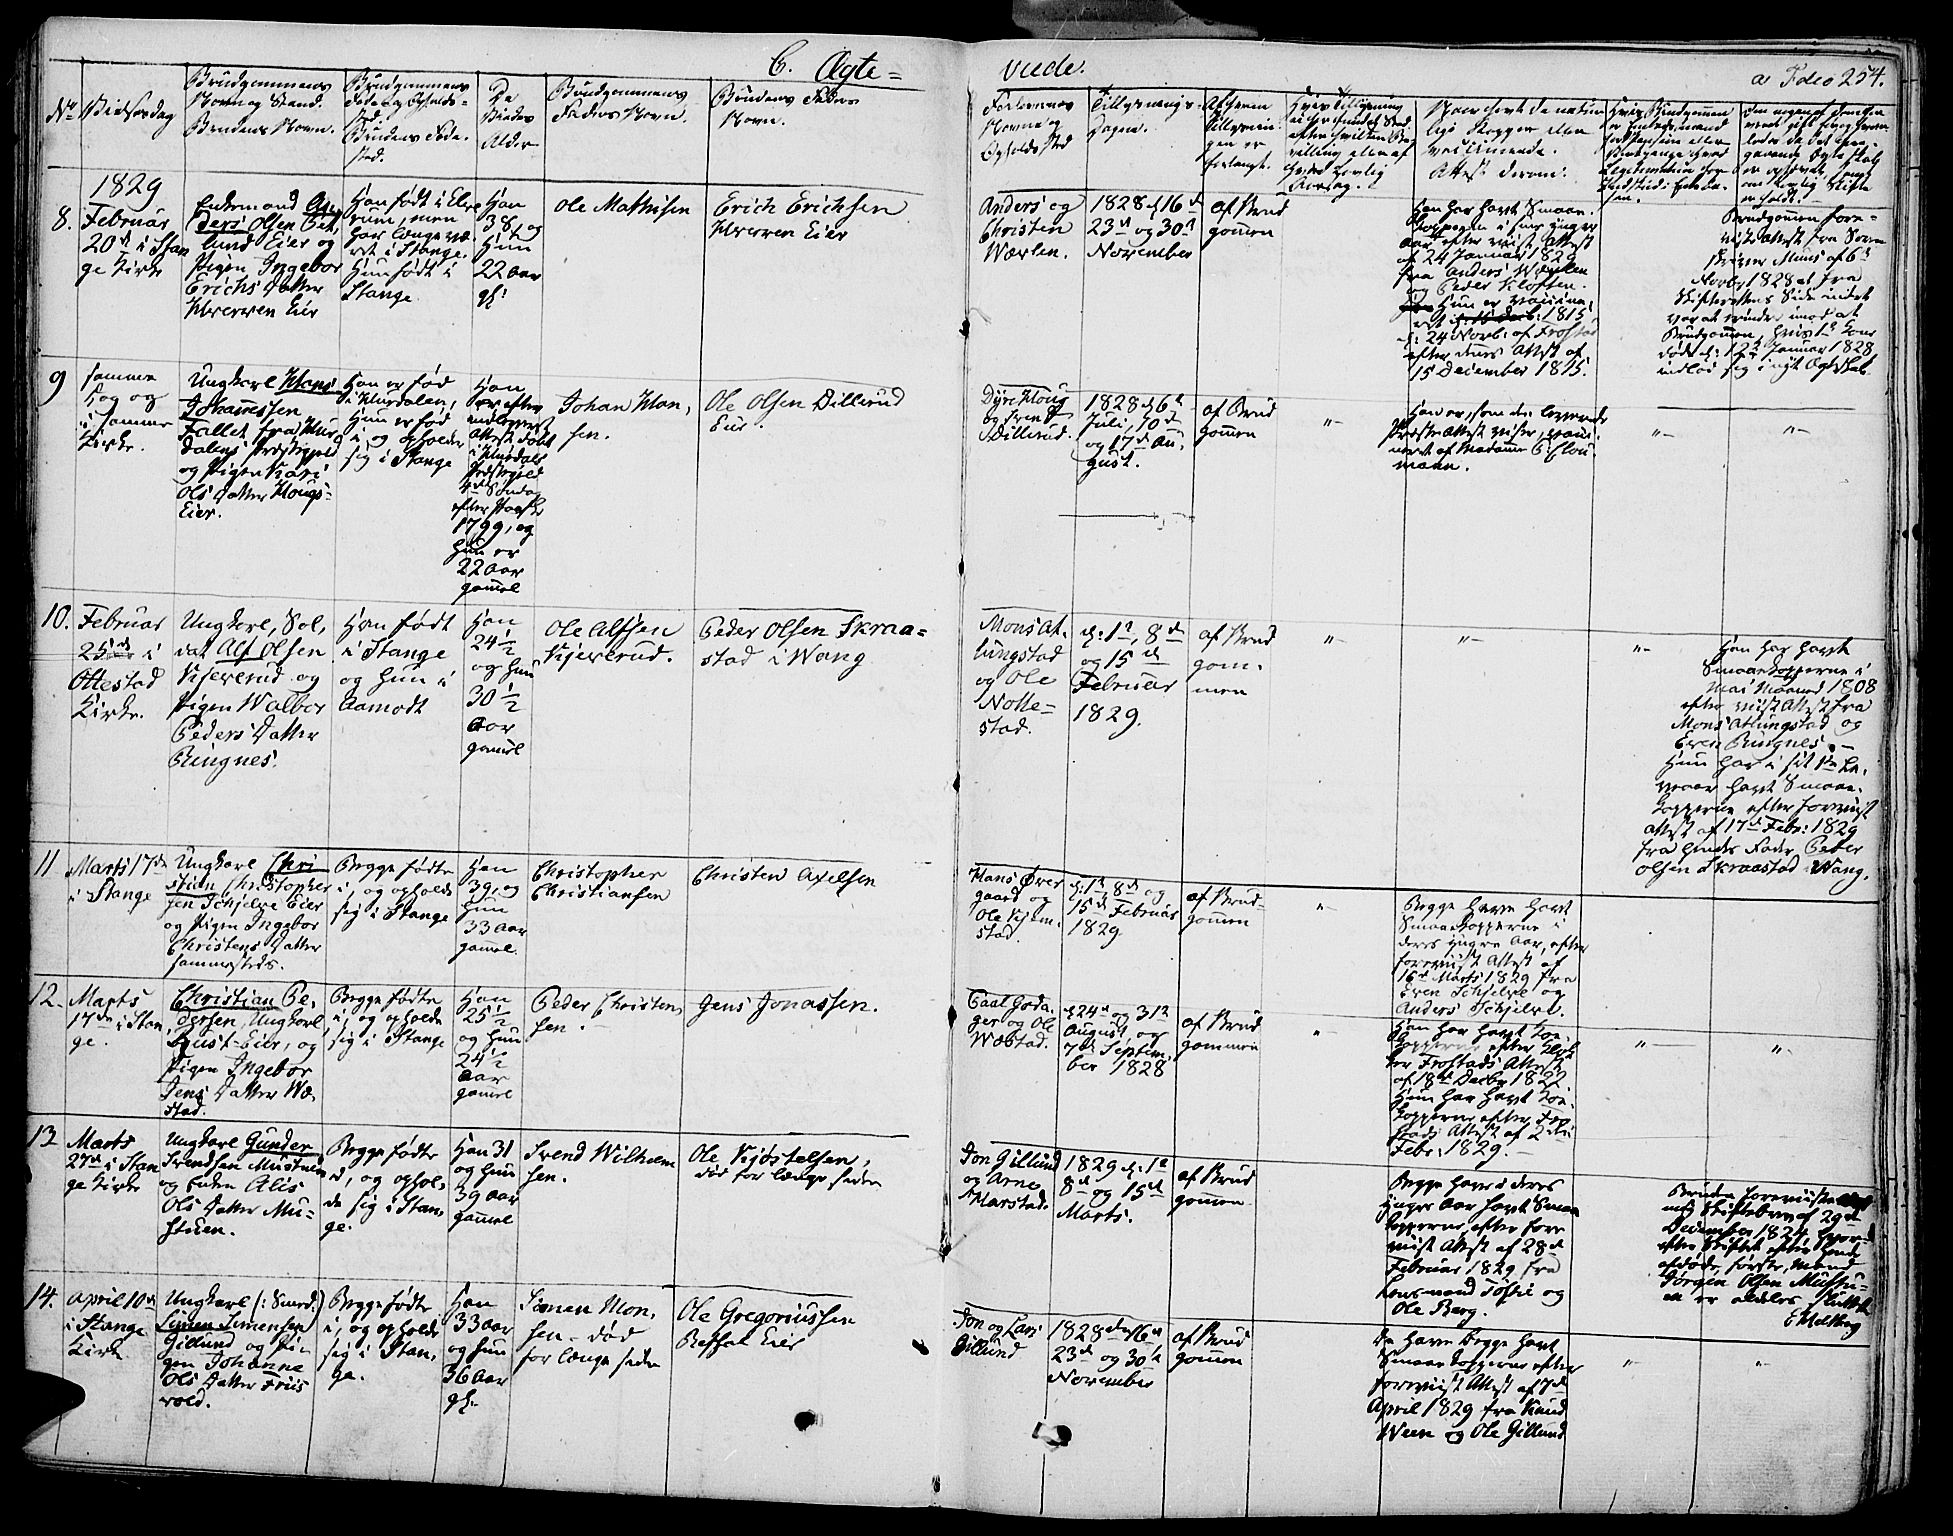 C. Ægte=
viede.
a Folio 254.
No
Vielsesdag
Brudgommens
Navn og Stand.
Brudens Navn.
Brudgommens
Føde og Opholds-
sted.
Brudens Føde-
sted.
De
Viedes
Alder
Brudgommens
Faders Navn.
Brudens Faders
Navn.
Forlovernes
Navne og
Opholdssted
Tillysnings-
dagene.
Af hvem
tillysnin-
gen er
forlangt.
Attest derom.
1829
8.
Februar
20de i Stan
ge Kirke
Enkemand An
ders Olsen
lund Eier og
Pigen Ingebor
Erichs Datter
Hverven Eier
Han født i Elve
rum, men
har længe væ
ret i Stange.
Hun født i
Stange
Han
38, og
Hun
22 Aar
gl:
Ole Mathisen
Erich Erichsen
Hverven Eier
Anders og
Christen
Wærten.
1828 d: 16de
23de og 30te
November
af Brud
gommen
Han har havt Smaae-
koppene i sine yngre
Aar efter viist Attest
af 24 Januar 1829
fra Anders Wærten
og Peder Kloften.
Hun er vaccine-
ret 1815
d: 24 Novb: af Frostad
efter dennes Attest af
15 December 1815.
Brudgommen fore-
viiste Attest fra Soren-
skriver Muus af 6te
Novbr 1828 at fra
Skifterettens Side intet
var at erindre imod at
Brudgommen, hvis 1te Kone
døde d: 12te Januar 1828
indlod sig i nyt Ægteskab.
9
samme
Dag og
i samme
Kirke.
Ungkarl Hans
Johannessen
Fallet fra Hur
dalens Præstegjeld
og Pigen Kari
Ols Datter Hougs-
Eier.
Han er fød
i Hurdalen,
Hun er født
i, og opholder
sig i Stange
Han
er efter
indleveret
Attest døbt
i Hurdals
Præstegjeld
4de Søndag
efter Paaske
1799, og
Hun er
22 Aar
gammel
Johan Han,
sen.
Ole Olsen Dillerud
Eier.
Dyre Houg
og Iver
Dillerud.
1828 d 6te
Juli, 10de
og 17de Au,
gust.
af Brud
gommen
"
Han er, som den leverede
Præsteattest viser, vacci-
neret af Madamme C: Clou-
mann.
"
"
10.
Februar
25de i
Ottestad
Kirke.
Ungkarl, Sol,
dat Alf Olsen
Kjeverud og
Pigen Walbor
Peders Datter
Ringnes.
Han født
i Stange
og Hun i
Aamodt
Han
24½
og Hun
30½
Aar
gammel
Ole Alfsen
Kjeverud.
Peder Olsen Skraa=
stad i Wang
Mons At-
lungstad
og Ole
Notte=
stad.
d: 1te, 8de
og 15de
Februar
1829.
af Brud
gom-
men
"
"
"
Han har havt
Smaaekoppene i
Mai Maaned 1808
efter viist Attest fra
Mons Atlungstad og
Even Ringnes. —
Hun har i sit 1ste Le-
veaar havt Smaae-
kopperne efter foreviist
Attest af 17de Febr: 1829
fra hendes Fader Peder
Olsen Skraastad i Wang.
11
Marts 17de
i Stange
Ungkarl Chri
stian Christopher
sen Schjelve Eier
og Pigen Ingebor
Christens Datter
sammesteds.
Begge fødte
i, og opholde
sig i Stange
Han
39, og
Hun
33 Aar
gammel.
Christopher
Christiansen
Christen Axelsen
Hans Over
gaard og
Ole Kjem-
stad.
d: 1te, 8de og
15de Februar
1829
af Brud-
gommen
"
Begge have havt
Smaaekopperne i
deres yngre Aar, efter
foreviist Attest af
16de Marts 1829 fra
Even Schjelve og
Anders Schjelve.
12.
Marts
17de i Stan,
ge.
Christian Pe-
dersen, Ungkarl
Hust-Eier, og
Pigen Ingebor
Jens Datter Wæ-
stad.
Begge fødte
i, og opholde
sig i Stange
Han
25½
og Hun
24½
Aar
gammel
Peder Christen,
sen.
Jens Jonassen.
Paal Goda-
ger og Ole
Wæstad.
d 24de og 31te
August og
7de Septem-
ber 1828
af Brud
gommen
"
Han har havt Koe-
kopperne efter
Frostads Attest
af 18de Decbr 1822
Hun har havt Koe-
kopperne efter Fro-
stads Attest af 2den
Febr: 1829. —
"
"
13
Marts
27de i Stan
ge Kirke
Ungkarl Gunder
Svendsen Mustuen
og Enken Alis
Ols Datter Mu-
stuen.
Begge fødte
i, og ophol-
de sig i Stan,
ge.
Han 31
og Hun
39 Aar
gammel
Svend Wilhelm
sen.
Ole Kjøstelsen,
død for længe siden
Jon Gillund
og Arne
Marstad.
1829 d: 1te
8de og 15de
Marts.
af Brud
gommen
Begge have i deres
yngre Aar havt Smaae
kopperne efter fore
viist Attest af 28de
Februar 1829 fra
Lensmand Tofsie og
Ole Berg.
Bruden foreviiste
med Skiftebrev af 29de
December 1824 hvor-
efter Skiftet efter hendes
afdøde første Mand
Jørgen Olsen Mustu-
en er aldeles sluttet
14.
April 10de
i Stange
Kirke
Ungkarl (: Smed:)
Simen Simensen
Gillund og Pi-
gen Johanne
Ols Datter Friis
vold.
Begge fødte
i, og opholde
sig i Stan,
ge.
Han
33 Aar
og Hun
36 Aar
gl.
Simen Mon,
sen – død
for længe siden
Ole Gregoriussen
Eier
Jon og Lars
Gillund
1828 d 16de
23de og 30te
November
af Brud
gommen
De have begge havt
Smaaekopperne efter
foreviist Attest af 7de
April 1829 fra Knud
Ween og Ole Gillund
"
"